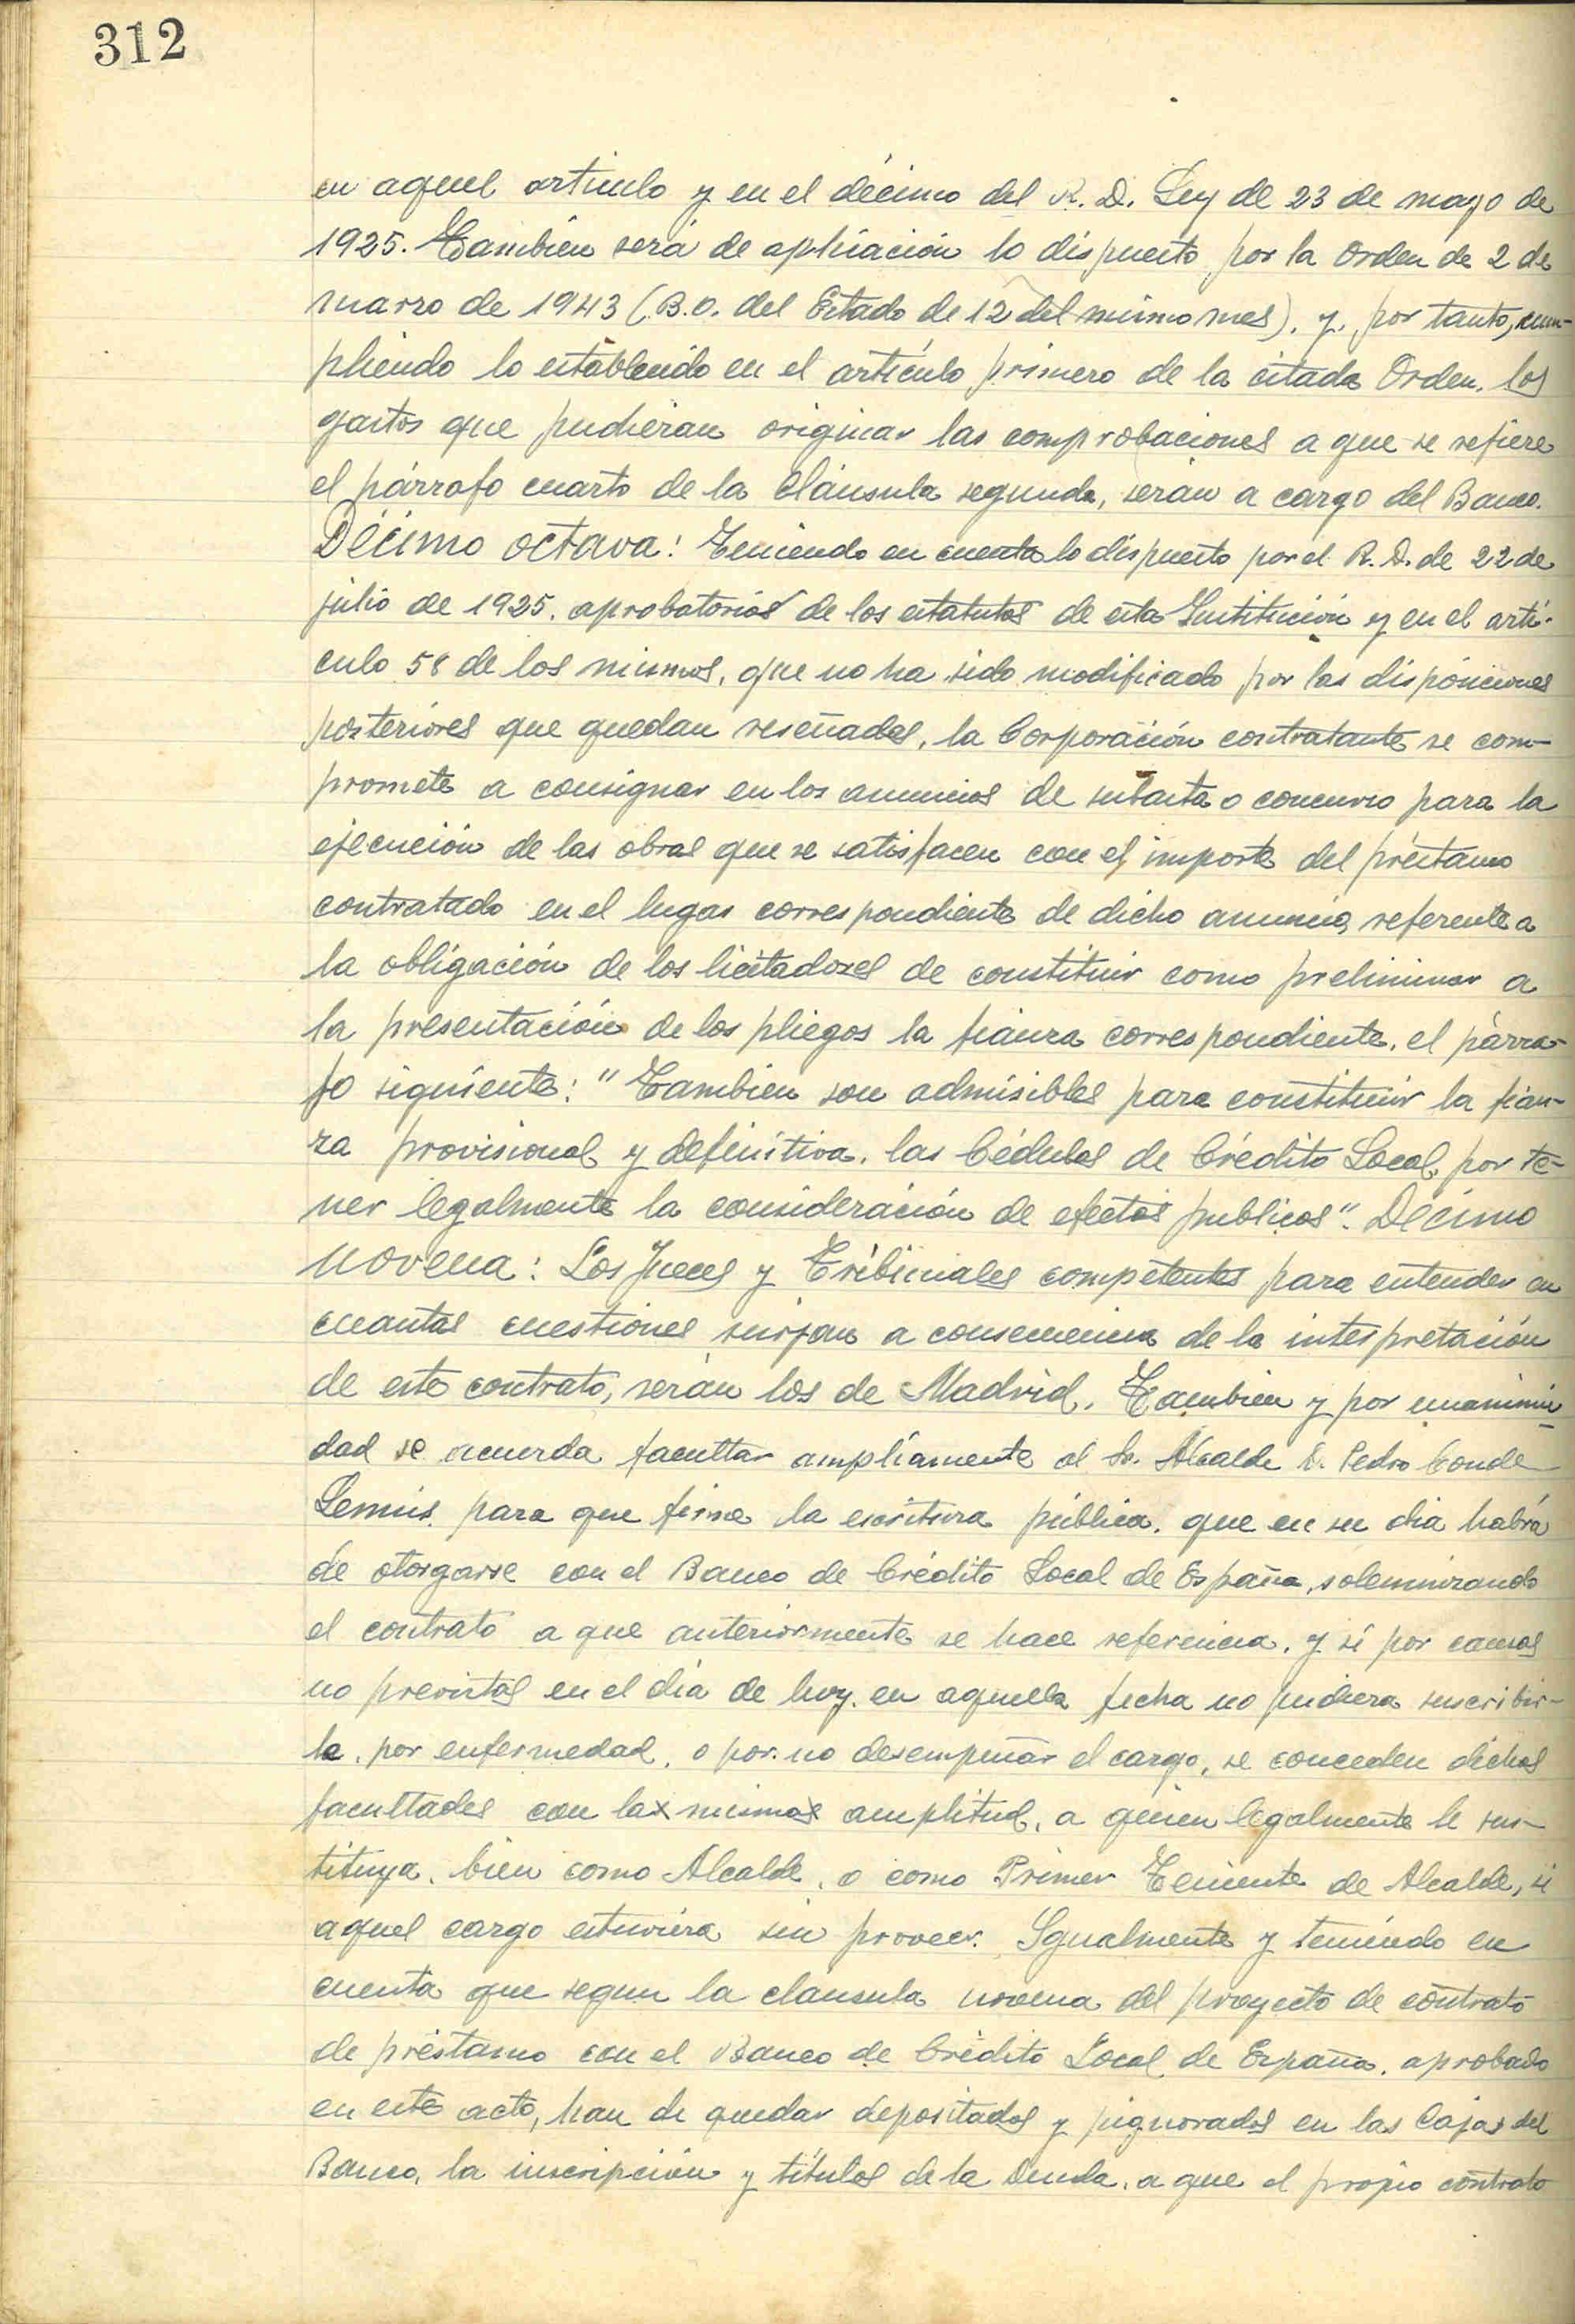 312
en aquel artículo y en el décimo del R. D. Ley de 23 de mayo de
1925. También será de apliación lo dispuesto por la Orden de 2 de
marzo de 1943 (B.O. del Estado de 12 del mismo mes), y, por tanto, cum-
pliendo lo establecido en el artículo primero de la citada Orden, los
gastos que pudieran originar las comprobaciones a que se refiere
el párrafo cuarto de la Cláusula segunda, serán a cargo del Banco.
Décimo octava: Teniendo en cuenta lo dispuesto por el R. D. de 22 de
julio de 1925, aprobatorios de los estatutos de esta Institución y en el artí-
culo 58 de los mismos, que no ha sido modificado por las disposiciones
posteriores que quedan reseñadas, la Corporación contratante se com-
promete a consignar en los anuncios de subasta o concurso para la
ejecución de las obras que se satisfacen con el importe del préstamo
contratado en el lugar correspondiente de dicho anuncio, referente a
la obligación de los licitadores de constituir como preliminar a
la presentación de los pliegos la fianza correspondiente, el párra-
fo siguiente: "Tambien son admisibles para constituir la fian-
za provisional y definitiva, las Cédulas de Crédito Local, por te-
ner legalmente la consideración de efectos publicos". Décimo
novena: Los Jueces y Tribunales competentes para entender en
cuantas cuestiones surjan a consecuencia de la interpretación
de este contrato, serán los de Madrid. Tambien y por unanimi-
dad se acuerda facultar ampliamente al Sr. Alcalde D. Pedro Conde
Lemus para que firme la escritura pública, que en su dia habrá
de otorgarse con el Banco de Crédito Local de España, solemnizando
el contrato a que anteriormente se hace referencia, y si por causas
no previstas en el día de hoy, en aquella fecha no pudiera suscribir-
la, por enfermedad, o por no desempeñar el cargo, se conceden dichas
facultades con la misma amplitud, a quien legalmente le sus-
tituya, bien como Alcalde, o como Primer Teniente de Alcalde, si
aquel cargo estuviera sin proveer. Igualmente y teniendo en
cuenta que segun la clausula novena del proyecto de contrato
de préstamo con el Banco de Crédito Local de España, aprobado
en este acto, han de quedar depositados y pignorados en las Cajas del
Banco, la inscripción y títulos de la Deuda, a que el propio contrato